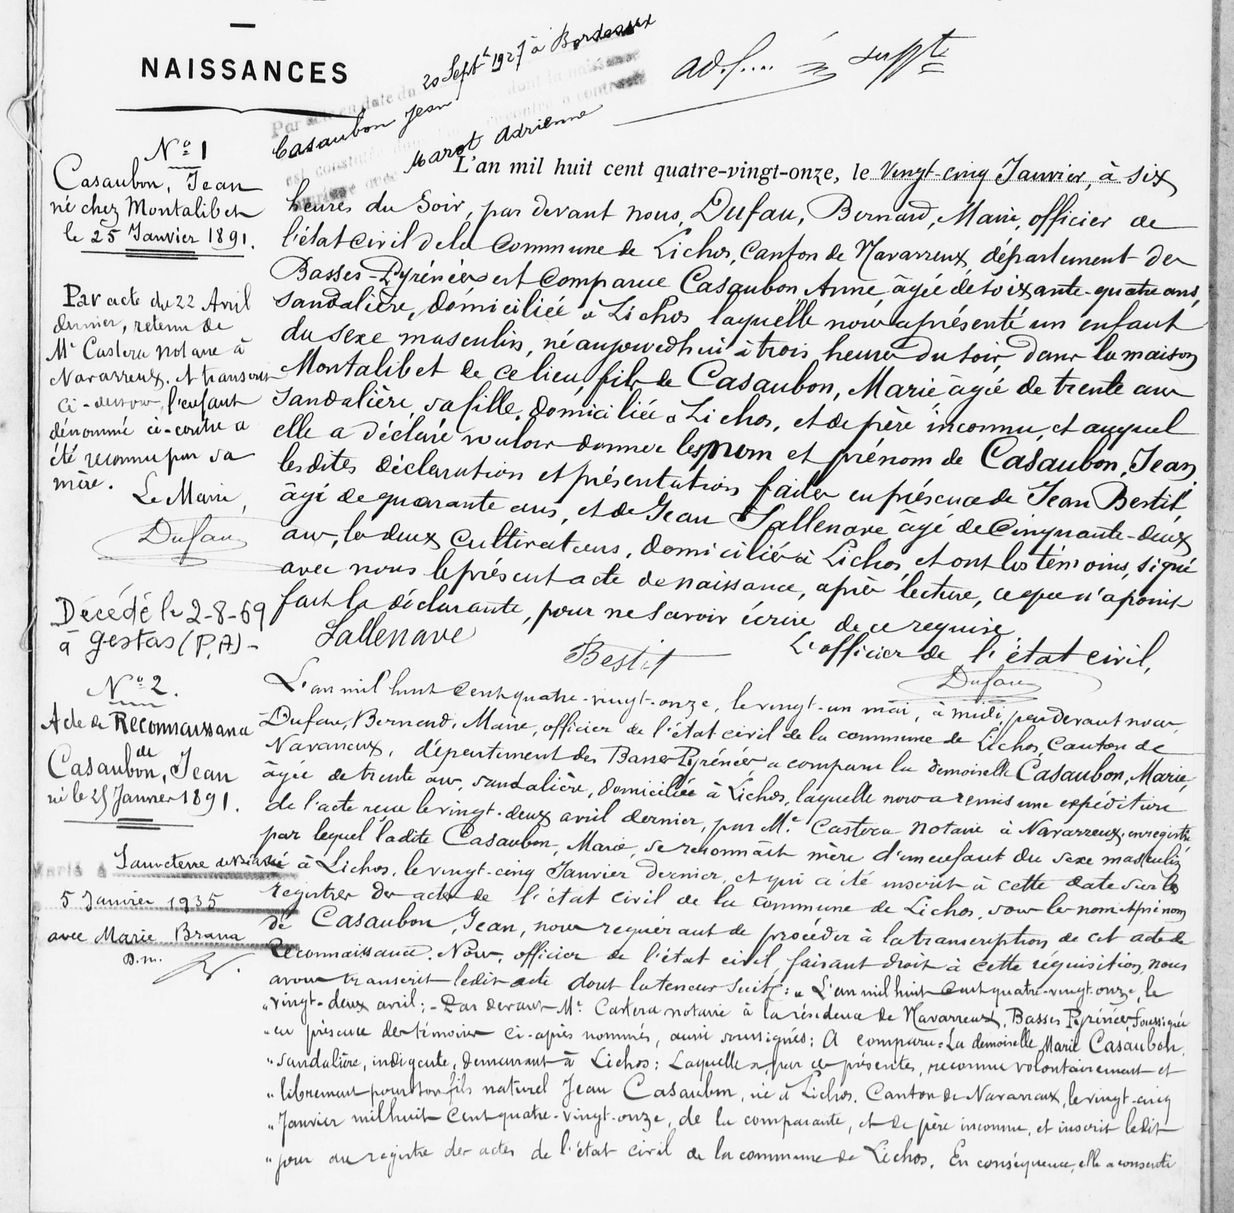 NAISSANCES
20 Sept 1927 à Bordeaux
Casaubon Jean
Marot Adrienne
Nº 1
Casaubon, Jean
né chez Montalibet
le 25 Janvier 1891.
Par acte du 22 Avril
dernier, retenu de
Mr Castera notaire à
Navarreux, et transcrit
ci-dessous, l'enfant
dénommé ci-contre a
été reconnu par sa
mère.
Le Maire,
Dufau
Décédé le 2-8-69
à Gestas (P.A)-
L'an mil huit cent quatre-vingt-onze, le vingt-cinq Janvier, à six
heures du soir, par devant nous, Dufau, Bernard, Maire, officier de
l'état civil de la Commune de Lichos, canton de Navarreux, département des
Basses-Pyrénées est comparue Casaubon Anne, âgée de soixante-quatre ans,
sandalière, domiciliée à Lichos laquelle nous a présenté un enfant
du sexe masculin, né aujourd'hui à trois heures du soir, dans la maison
Montalibet de ce lieu fils de Casaubon, Marie âgée de trente ans
sandalière, sa fille, domiciliée à Lichos, et de père inconnu, et auquel
elle a déclaré vouloir donner les nom et prénom de Casaubon, Jean,
lesdites déclaration et présentation faites en présence de Jean Bestit,
âgé de quarante ans, et de Jean Sallenave âgé de cinquante-deux
ans, les deux cultivateurs, domiciliés à Lichos, et ont les témoins, signé
avec nous le présent acte de naissance, après lecture, ce que n'a point
fait la déclarante, pour ne savoir écrire de ce requise
Sallenave
Bestit
L'officier de l'état civil,
Dufau
Nº 2.
Acte de Reconnaissance
de
Casaubon, Jean
né le 25 Janvier 1891.
Marié à Sauveterre de Béarn
5 Janvier 1935
avec Marie Brana
D.m.
L'an mil huit cent quatre-vingt-onze, le vingt-un mai, à midi, par devant nous
Dufau, Bernard, Maire, officier de l'état civil de la commune de Lichos, Canton de
Navarreux, département des Basses Pyrénées a comparu la demoiselle Casaubon, Marie,
âgée de trente ans, sandalière, domiciliée à Lichos, laquelle nous a remis une expédition
de l'acte reçu le vingt-deux avril dernier, par Me Castera notaire à Navarreux, enregistré
par lequel ladite Casaubon, Marie, se reconnaît mère d'un enfant du sexe masculin,
né à Lichos, le vingt-cinq Janvier dernier, et qui a été inscrit à cette date sur les
registres des actes de l'état civil de la commune de Lichos, sous les nom et prénom
de Casaubon, Jean, nous requérant de procéder à la transcription de cet acte de
Reconnaissance. Nous, officier de l'état civil, faisant droit à cette réquisition, nous
avons transcrit ledit acte dont la teneur suit: „ L'an mil huit cent quatre-vingt-onze, le
„ vingt-deux avril; - Par devant Me Castera notaire à la résidence de Navarreux, Basses Pyrénées, soussigné
„ en présence des témoins ci-après nommés, aussi soussignés: A comparu: La demoiselle Marie Casaubon,
„ sandalière, indigente, demeurant à Lichos: Laquelle a, par ces présentes, reconnu volontairement et
„ librement pour son fils naturel Jean Casaubon, né à Lichos, Canton de Navarreux, le vingt-cinq
„ Janvier mil huit cent quatre-vingt-onze, de la comparante, et de père inconnu, et inscrit ledit
„ jour au registre des actes de l'état civil de la commune de Lichos. En conséquence, elle a consenti